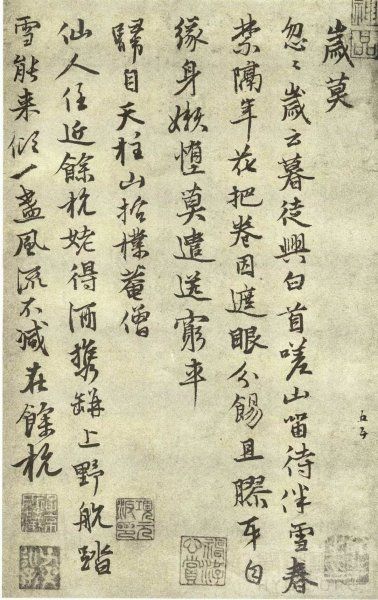 神品
歲莫
忽〻歲云暮徒興白首嗟山留待伴雪春
禁隔年花把卷因遮眼分餳且膠牙自
緣身嬾惰莫遣送窮車
歸自天柱山招樸菴僧
仙人住近餘杭姥得酒携缾上野航踏
雪能来傾一盞風流不減在餘杭